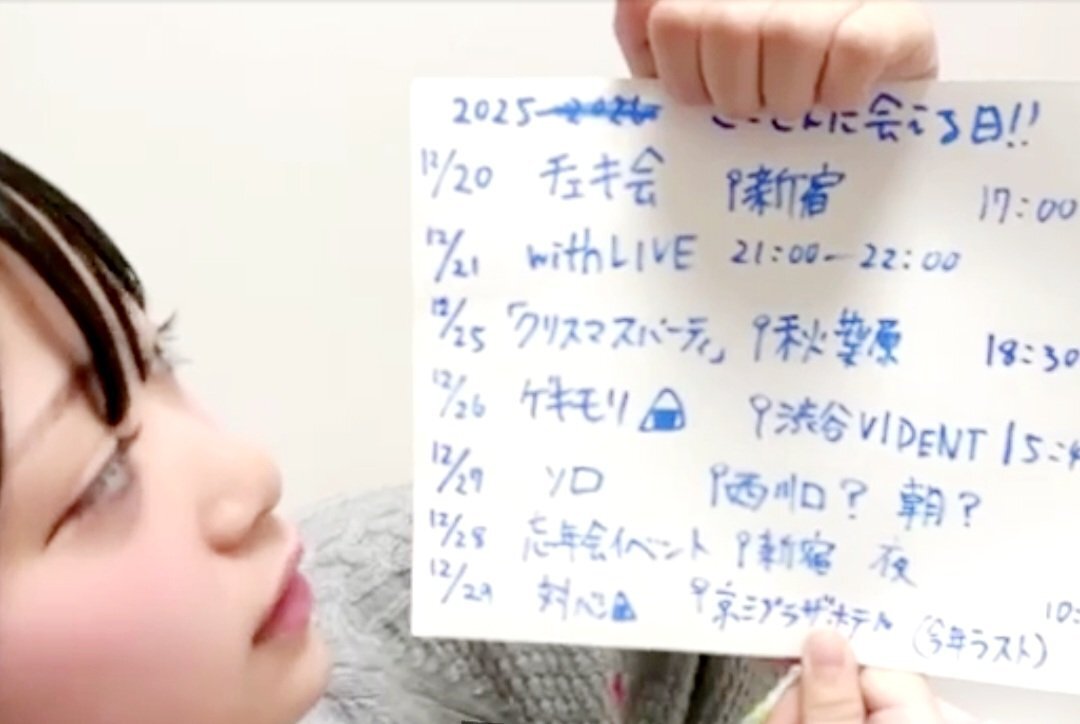 2025 に会える日!!
12/20 チェキ会 新宿 17:00
12/21 withLIVE 21:00-22:00
12/25 「クリスマスパーティ」 秋葉原 18:30
12/26 ゲキモリ 渋谷VIDENT 15:4
12/27 ソロ 西川口? 朝?
12/28 忘年会イベント 新宿 夜
12/29 対バン 京王プラザホテル (今年ラスト) 10: